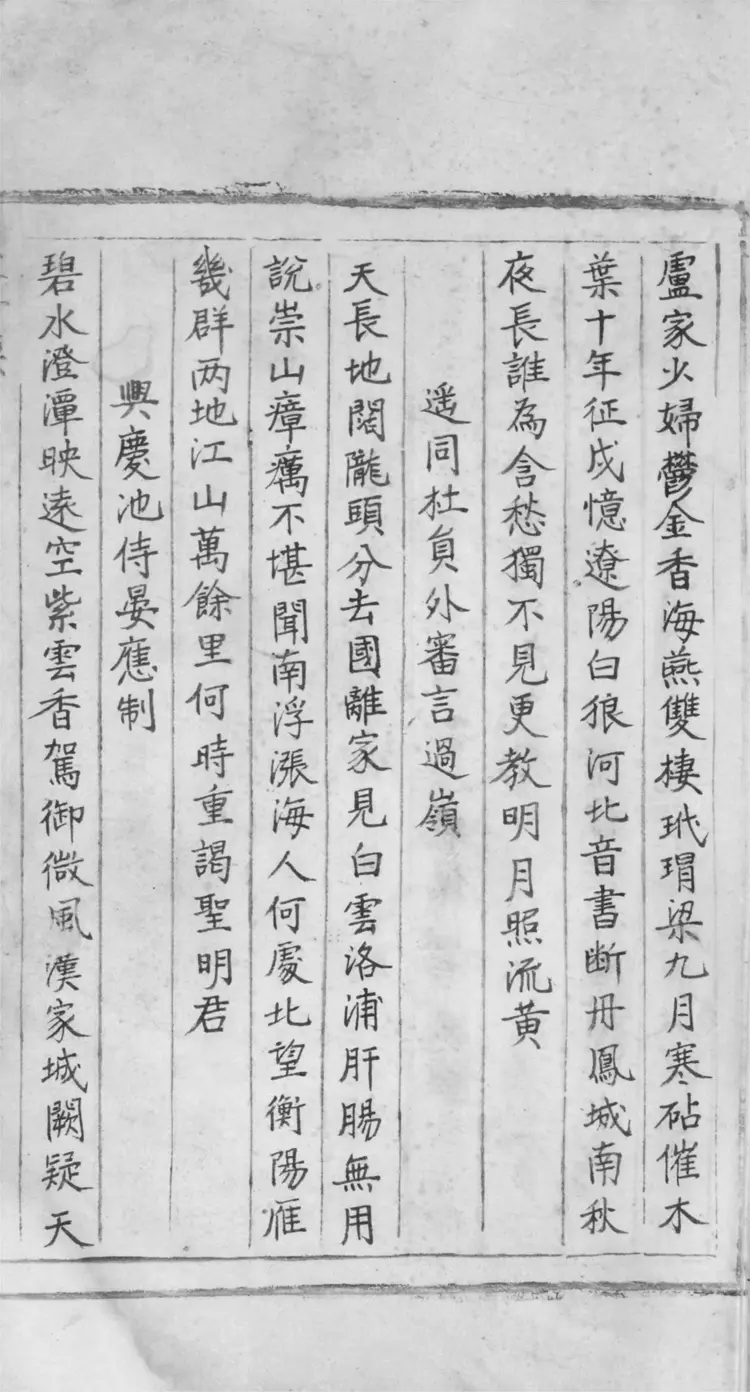 盧家少婦鬱金香海燕雙棲玳瑁梁九月寒砧催木
葉十年征戍憶遼陽白狼河北音書断丹鳳城南秋
夜長誰為含愁獨不見更教明月照流黄
遥同杜員外審言過嶺
天長地闊隴頭分去國離家見白雲洛浦肝腸無用
說崇山瘴癘不堪聞南浮漲海人何處北望衡陽雁
幾群两地江山萬餘里何時重謁聖明君
興慶池侍晏應制
碧水澄潭映遠空紫雲香駕御微風漢家城闕疑天